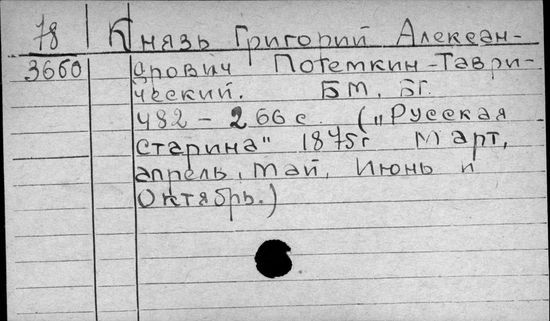 78 Князь Григорий Алексан-
3660 дрович Потемкин-Таври-
ческий. БМ, БГ.
482 - 266 с. („Русская
старина" 1875г Март,
апрель, май, Июнь и
Октябрь.)